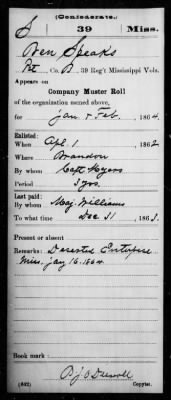 (Confederate.)
S 39 Miss.
Ben Speaks
Pvt Co. B, 39 Reg't Mississippi Vols.
Appears on
Company Muster Roll
of the organization named above,
for Jan & Feb, 1864.
Enlisted:
When Apl. 1, 1862
Where Brandon
By whom Capt Myers
Period 3 yrs.
Last paid:
By whom Maj. Williams
To what time Dec 31, 1863.
Present or absent
Remarks: Deserted Enterprise
Miss. Jany 16. 1864.
Book mark:
(642) Copyist.